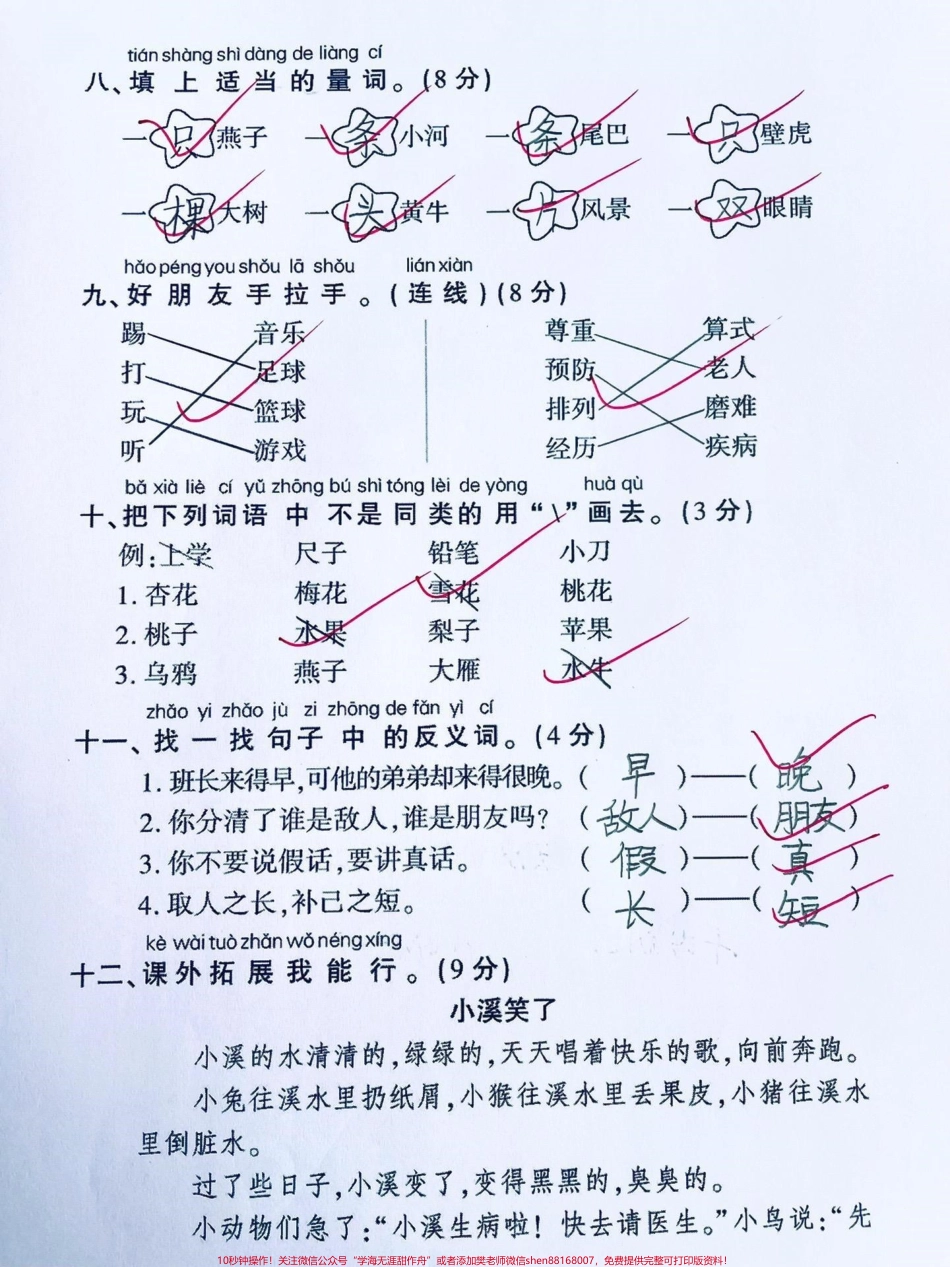 tián shàng shì dàng de liàng cí
八、填上适当的量词。(8分)
一只燕子 一条小河 一条尾巴 一只壁虎
一棵大树 一头黄牛 一片风景 一双眼睛
hǎo péng you shǒu lā shǒu lián xiàn
九、好朋友手拉手。(连线)(8分)
踢 音乐 尊重 算式
打 足球 预防 老人
玩 篮球 排列 磨难
听 游戏 经历 疾病
bǎ xià liè cí yǔ zhōng bú shì tóng lèi de yòng huà qù
十、把下列词语中不是同类的用“\”画去。(3分)
例:上学 尺子 铅笔 小刀
1. 杏花 梅花 雪花 桃花
2. 桃子 水果 梨子 苹果
3. 乌鸦 燕子 大雁 水牛
zhǎo yi zhǎo jù zi zhōng de fǎn yì cí
十一、找一找句子中的反义词。(4分)
1. 班长来得早,可他的弟弟却来得很晚。(早)——(晚)
2. 你分清了谁是敌人,谁是朋友吗?(敌人)——(朋友)
3. 你不要说假话,要讲真话。(假)——(真)
4. 取人之长,补己之短。(长)——(短)
kè wài tuò zhǎn wǒ néng xíng
十二、课外拓展我能行。(9分)
小溪笑了
小溪的水清清的,绿绿的,天天唱着快乐的歌,向前奔跑。
小兔往溪水里扔纸屑,小猴往溪水里丢果皮,小猪往溪水
里倒脏水。
过了些日子,小溪变了,变得黑黑的,臭臭的。
小动物们急了:“小溪生病啦!快去请医生。”小鸟说:“先
10秒钟操作！关注微信公众号“学海无涯甜作舟”或者添加樊老师微信shen88168007，免费提供完整可打印版资料！